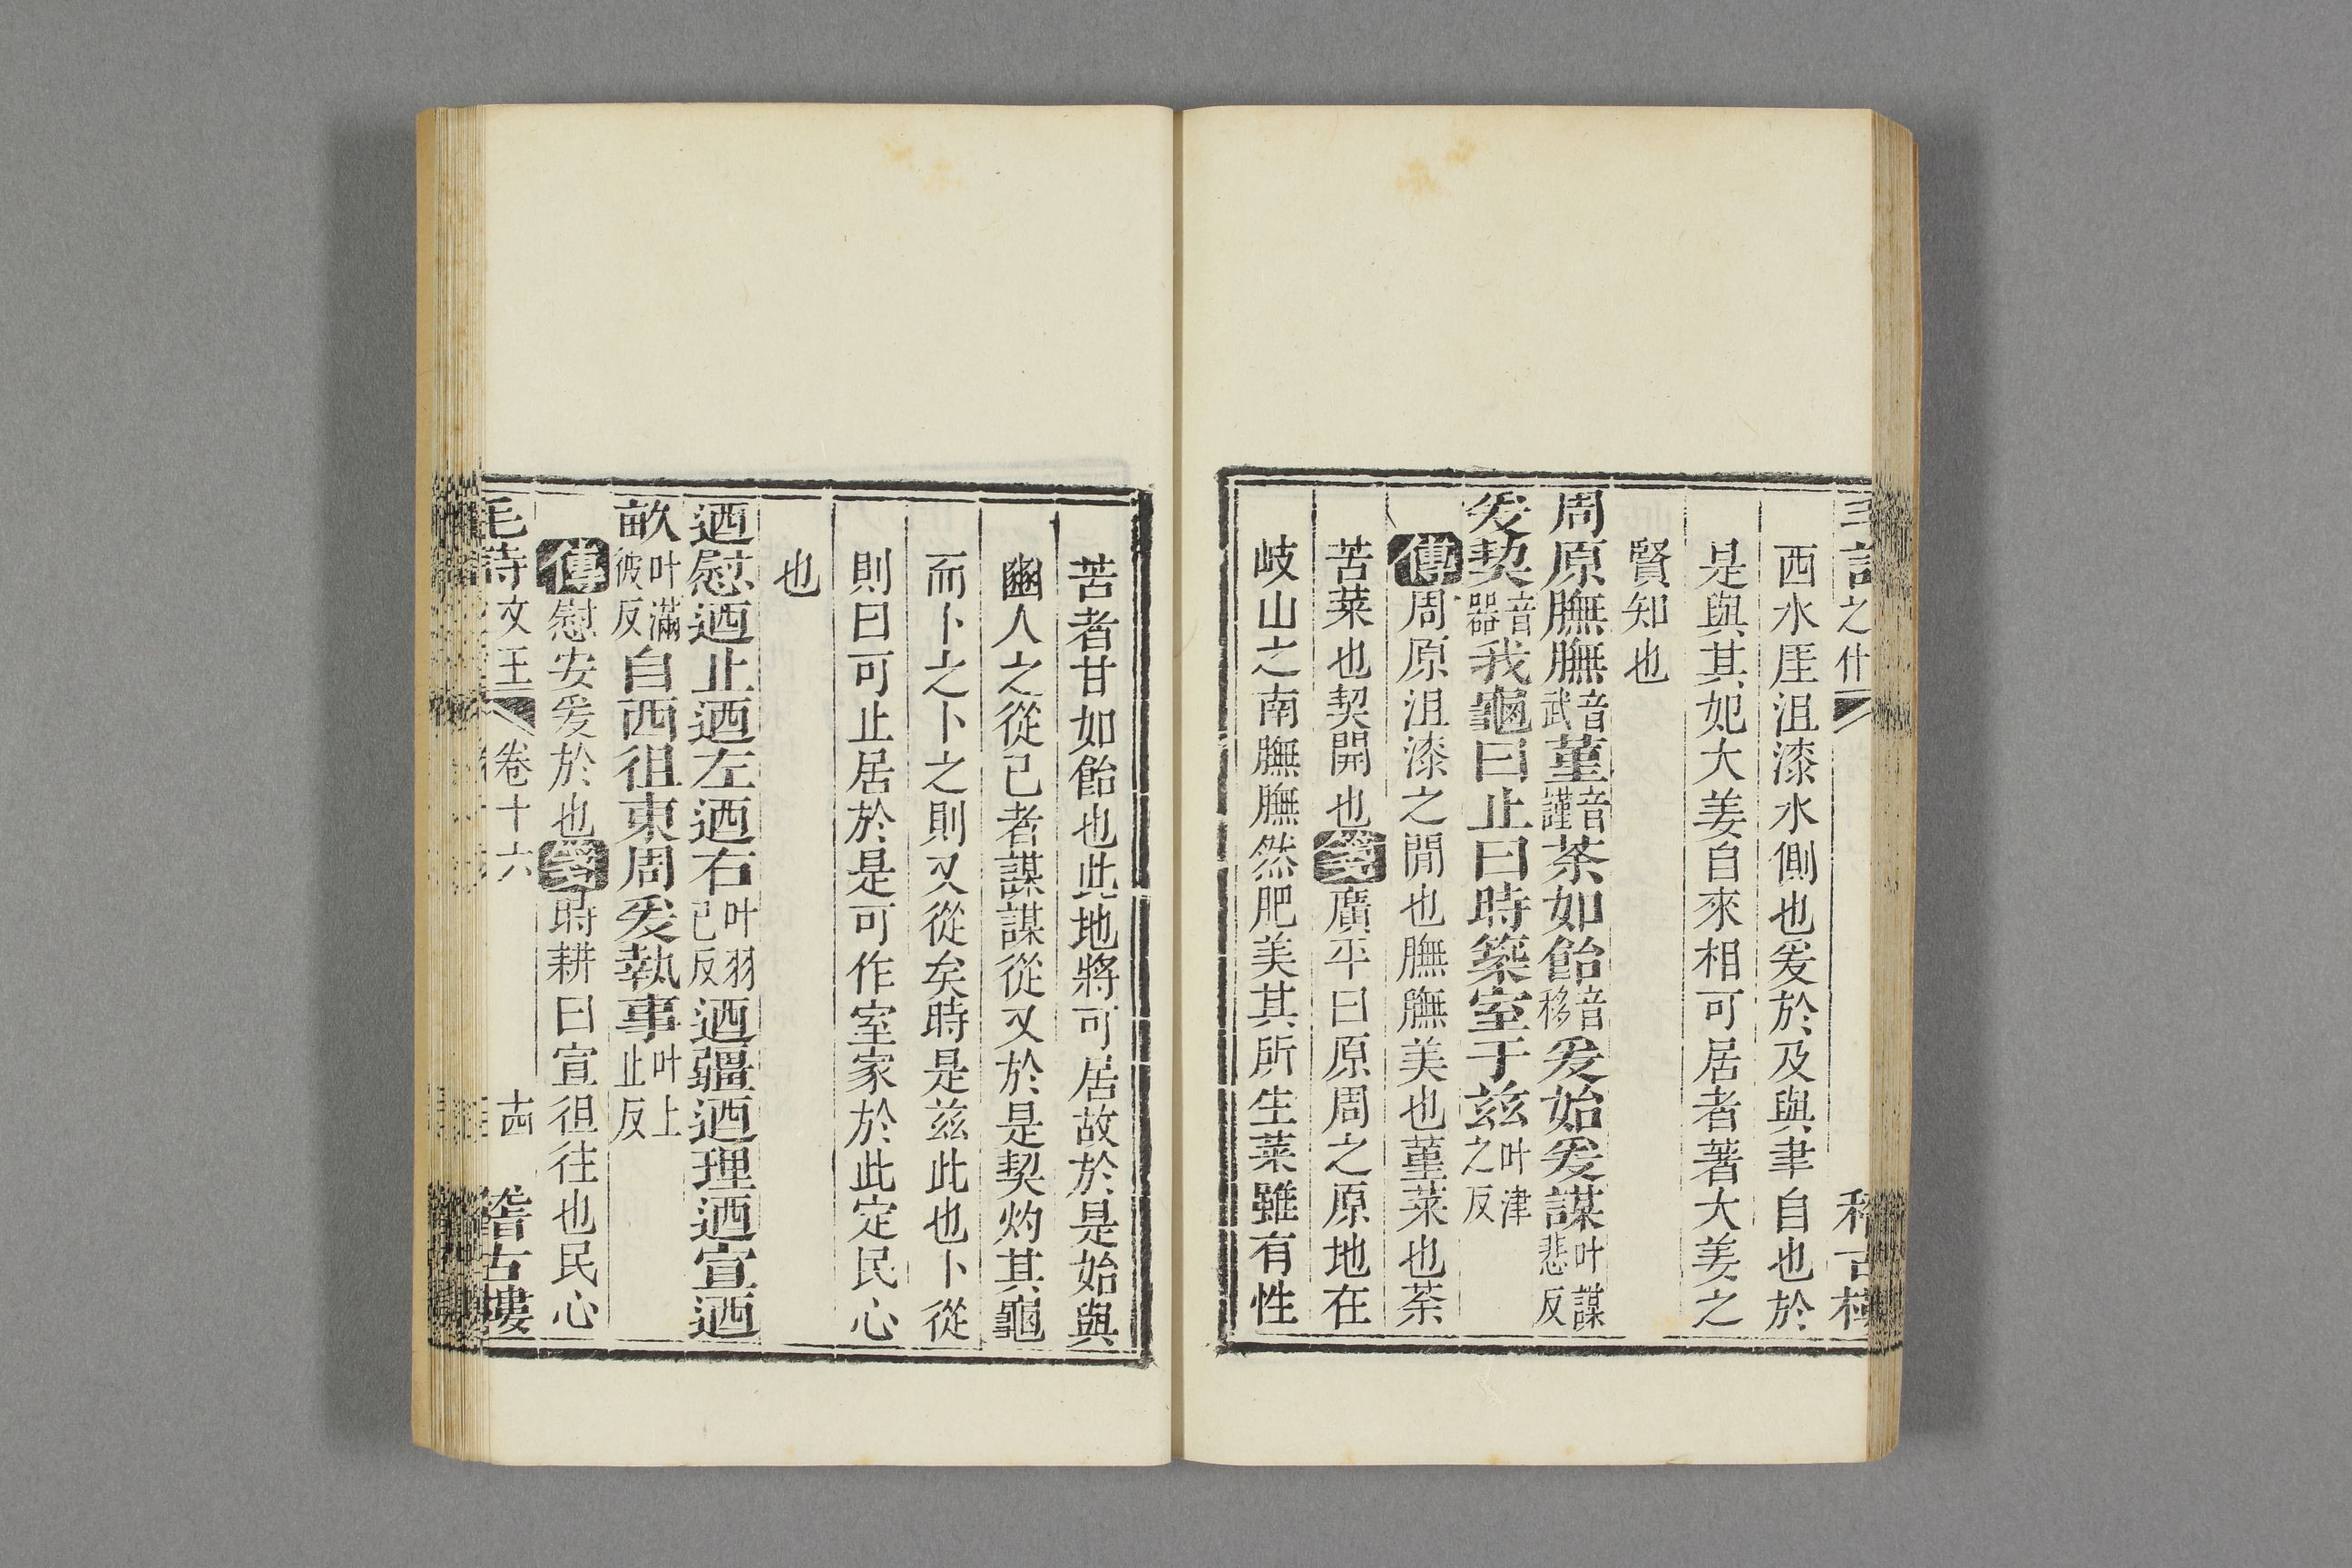 之什
西水厓沮漆水側也爰於及與聿自也於
是與其妃大姜自來相可居者著大姜之
賢知也
周原膴膴音武菫音謹荼如飴音移爰始爰謀叶謀悲反
爰契音器我龜曰止曰時築室于兹叶津之反
傳周原沮漆之閒也膴膴美也菫菜也荼
苦菜也契開也箋廣平曰原周之原地在
岐山之南膴膴然肥美其所生菜雖有性
苦者甘如飴也此地將可居故於是始與
豳人之從已者謀謀從又於是契灼其龜
而卜之卜之則又從矣時是兹此也卜從
則曰可止居於是可作室家於此定民心
也
迺慰迺止迺左迺右叶羽已反迺疆迺理迺宣迺
畝叶滿彼反自西徂東周爰執事叶上止反
傳慰安爰於也箋時耕曰宣徂往也民心
毛詩文王 卷十六 十四 稽古樓